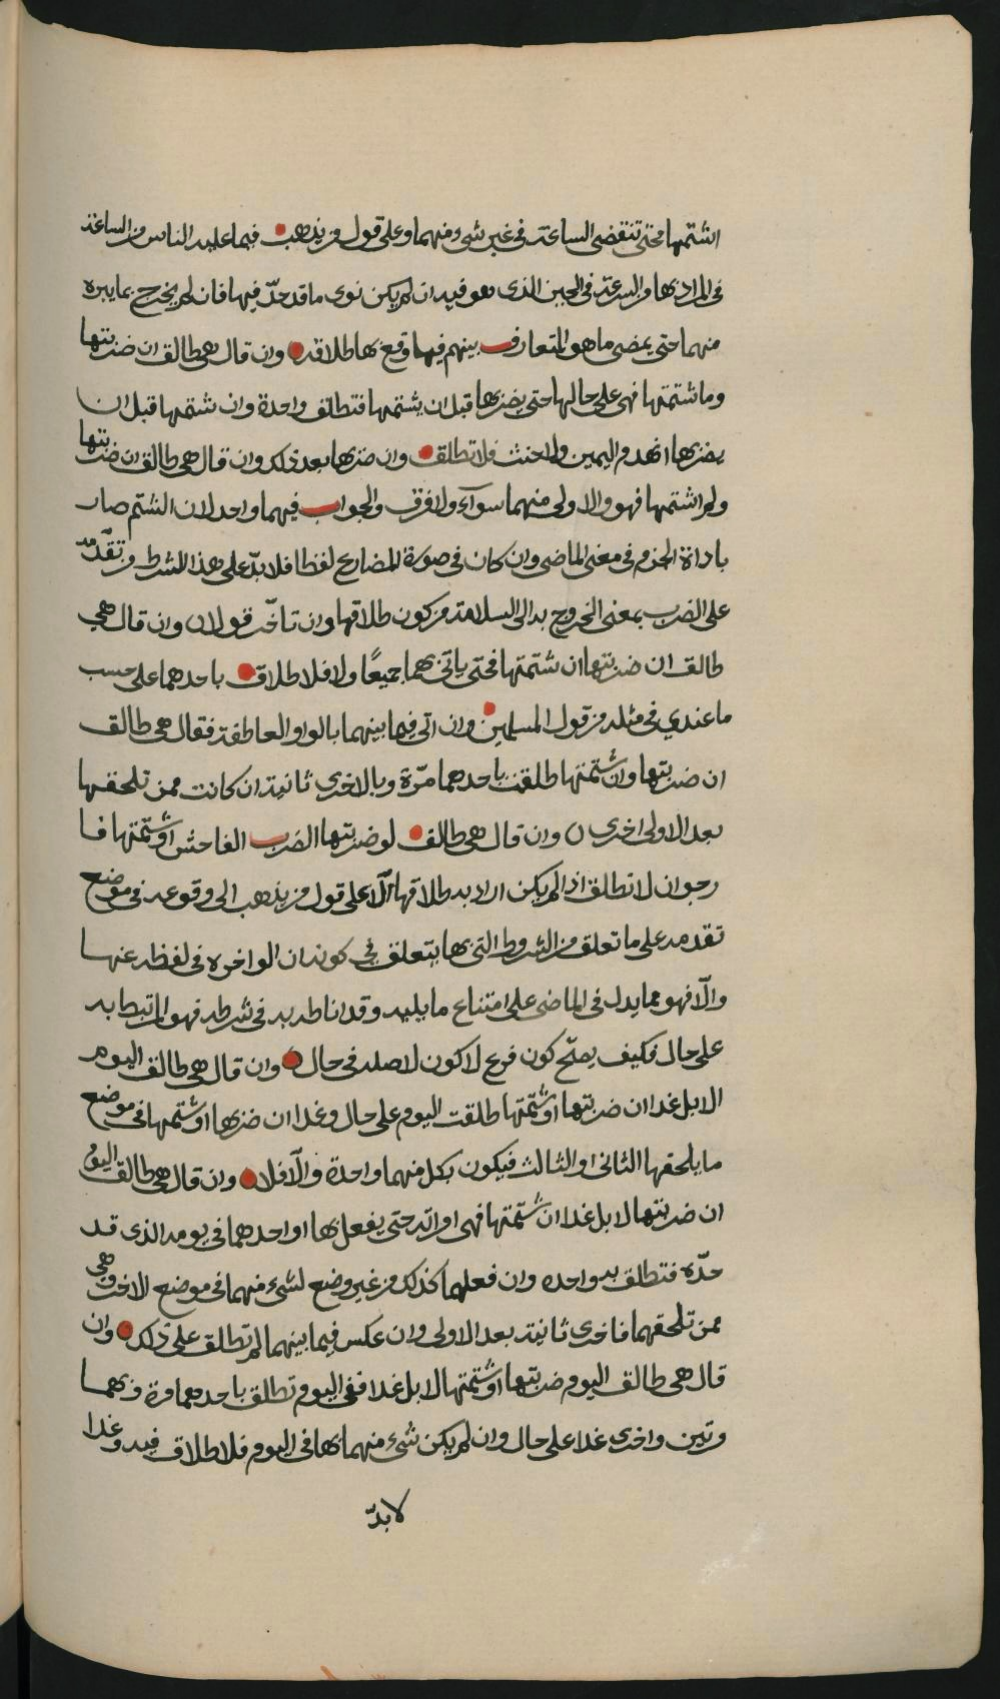 اشتمها فحتى تنقضى الساعة فى غير شىء منهما وعلى قول من يذهب فيما عليه الناس من الساعة
فى المراد بها من السرعة فى الحين الذى هو فيه ان لم يكن نوى ما قد حدّ فيها فان لم يخرج بما يبره
منهما حتى يمضى ما هو المتعارف بينهم فيها وقع بها طلاقه وان قال هى طالق ان ضربتها
وما شتمتها فهى على حالها حتى يضربها قبل ان يشتمها فتطلق واحدة وان شتمها قبل ان
يضربها انهدم اليمين ولا حنث فلا تطلق وان ضربها بعد ذلك وان قال هى طالق ان ضربتها
ولم اشتمها فهو والاولى منهما سوآء ولا فرق والجواب فيهما واحد لان الشتم صار
باداة الجزم فى معنى الماضى وان كان فى صورة المضارع لفظا فلا بدّ على هذا الشرط من تقدّمه
على الضرب بمعنى الخروج به الى السلامة من كون طلاقها وان تاخّر فقولان وان قال هى
طالق ان ضربتها ان شتمتها فحتى ياتى بهما جميعًا والا فلا طلاق باحدهما على حسب
ما عندي فى مثله من قول المسلمين وان اتى فيما بينهما بالواو العاطفة فقال هى طالق
ان ضربتها وان شتمتها طلقت باحدهما مرّة وبالاخرى ثانية ان كانت ممن تلحقها
بعد الاولى اخرى وان قال هى طالق لو ضربتها الضرب الفاحش او شتمتها فا
رجو ان لا تطلق اذا لم يكن اراد به طلاقها الّا على قول من يذهب الى وقوعه فى موضع
تقدمه على ما تعلق من الشروط التى بها يتعلق فى كونه ان لو اخره فى لفظه عنها
والّا فهو مما يدل فى الماضى على امتناع ما يليه وقد اناطه به فى شرطه فهو المرتبط به
على حال فكيف يصحّ كون فرع لا كون لاصله فى حال وان قال هى طالق اليوم
الا بل غدا ان ضربتها او شتمتها طلقت اليوم على حال وغدا ان ضربها او شتمها فى موضع
ما يلحقها الثانى او الثالث فيكون بكل منهما واحدة والّا فلا وان قال هى طالق اليوم
ان ضربتها لا بل غدا ان شتمتها فهى امراته حتى يفعل بها او احدهما فى يومه الذى قد
حدّه فتطلق به واحده وان فعلهما كذلك من غير وضع لشىء منهما فى موضع الاخر وهى
ممن تلحقهما فاخرى ثانية بعد الاولى وان عكس فيما بينهما لم تطلق على ذلك وان
قال هى طالق اليوم ضربتها او شتمتها لا بل غدا ففى اليوم تطلق باحدهما مرة وبهما
مرتين واخرى غدا على حال وان لم يكن شىء منهما بها فى اليوم فلا طلاق فيه وغدا
لا بدّ